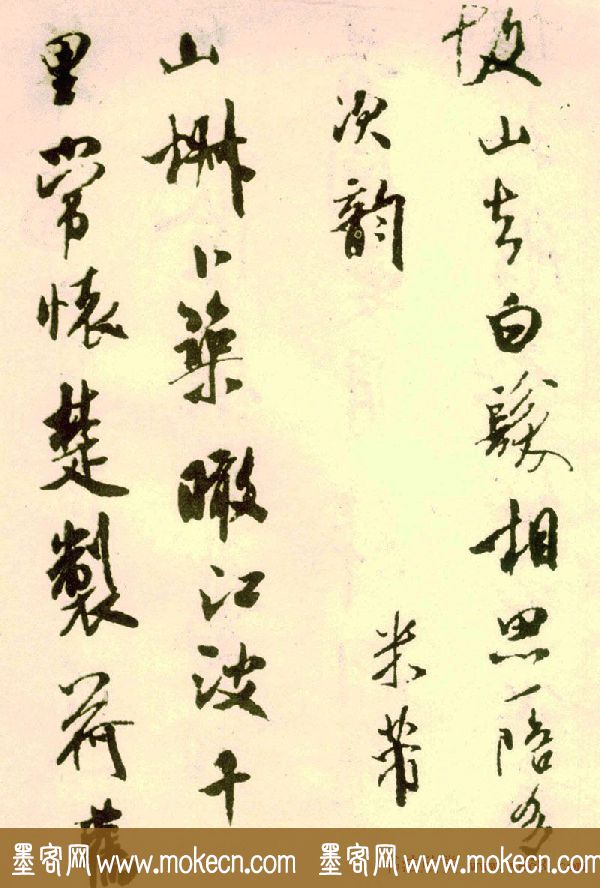 山去白髮相思一陪多
次韵 米芾
山椒卜築瞰江波千
里常懷楚製荷
墨客网 www.mokecn.com 墨客网 www.mokecn.com